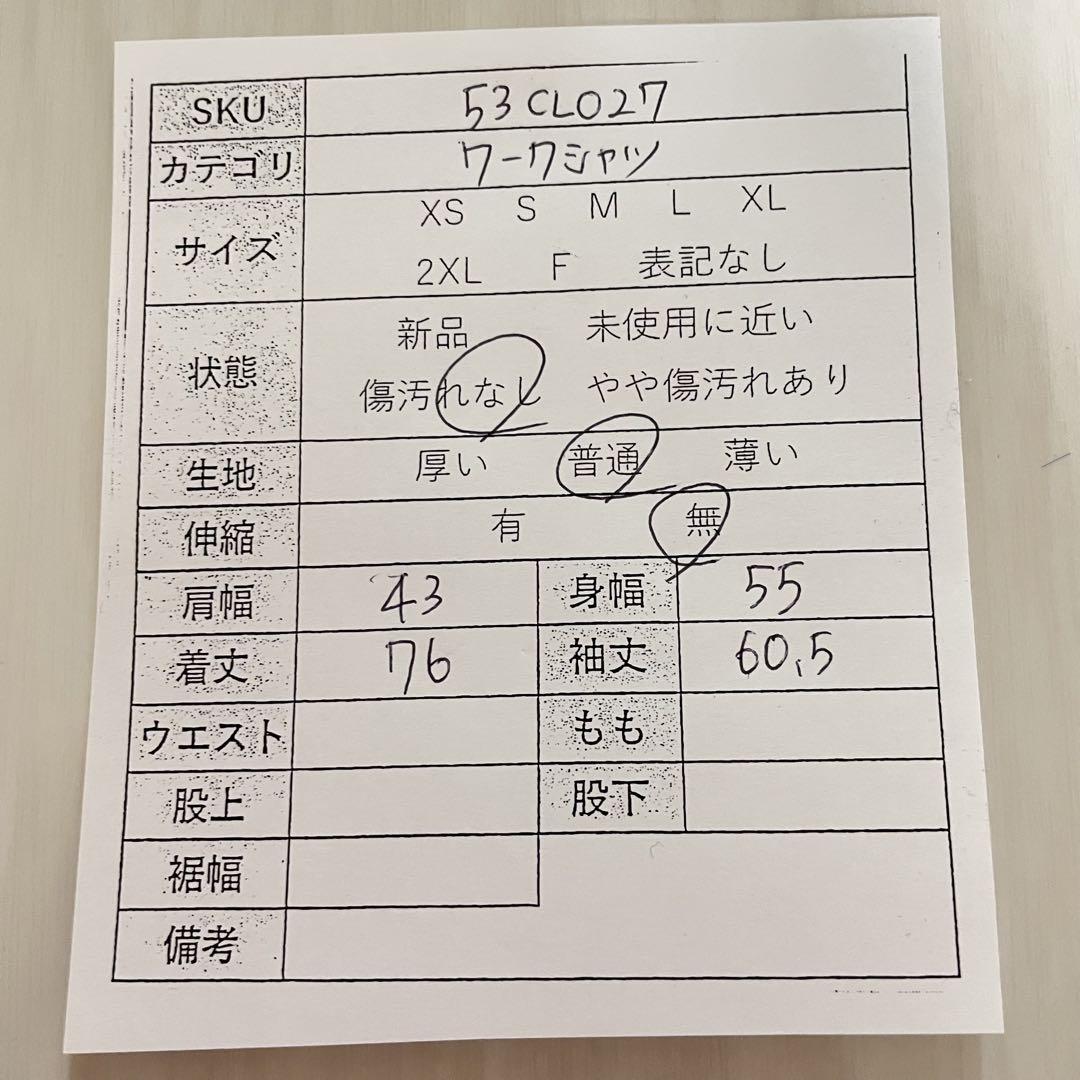 SKU 53CL027
カテゴリ ワークシャツ
サイズ XS S M L XL
2XL F 表記なし
状態 新品 未使用に近い
傷汚れなし やや傷汚れあり
生地 厚い 普通 薄い
伸縮 有 無
肩幅 43 身幅 55
着丈 76 袖丈 60.5
ウエスト もも
股上 股下
裾幅
備考